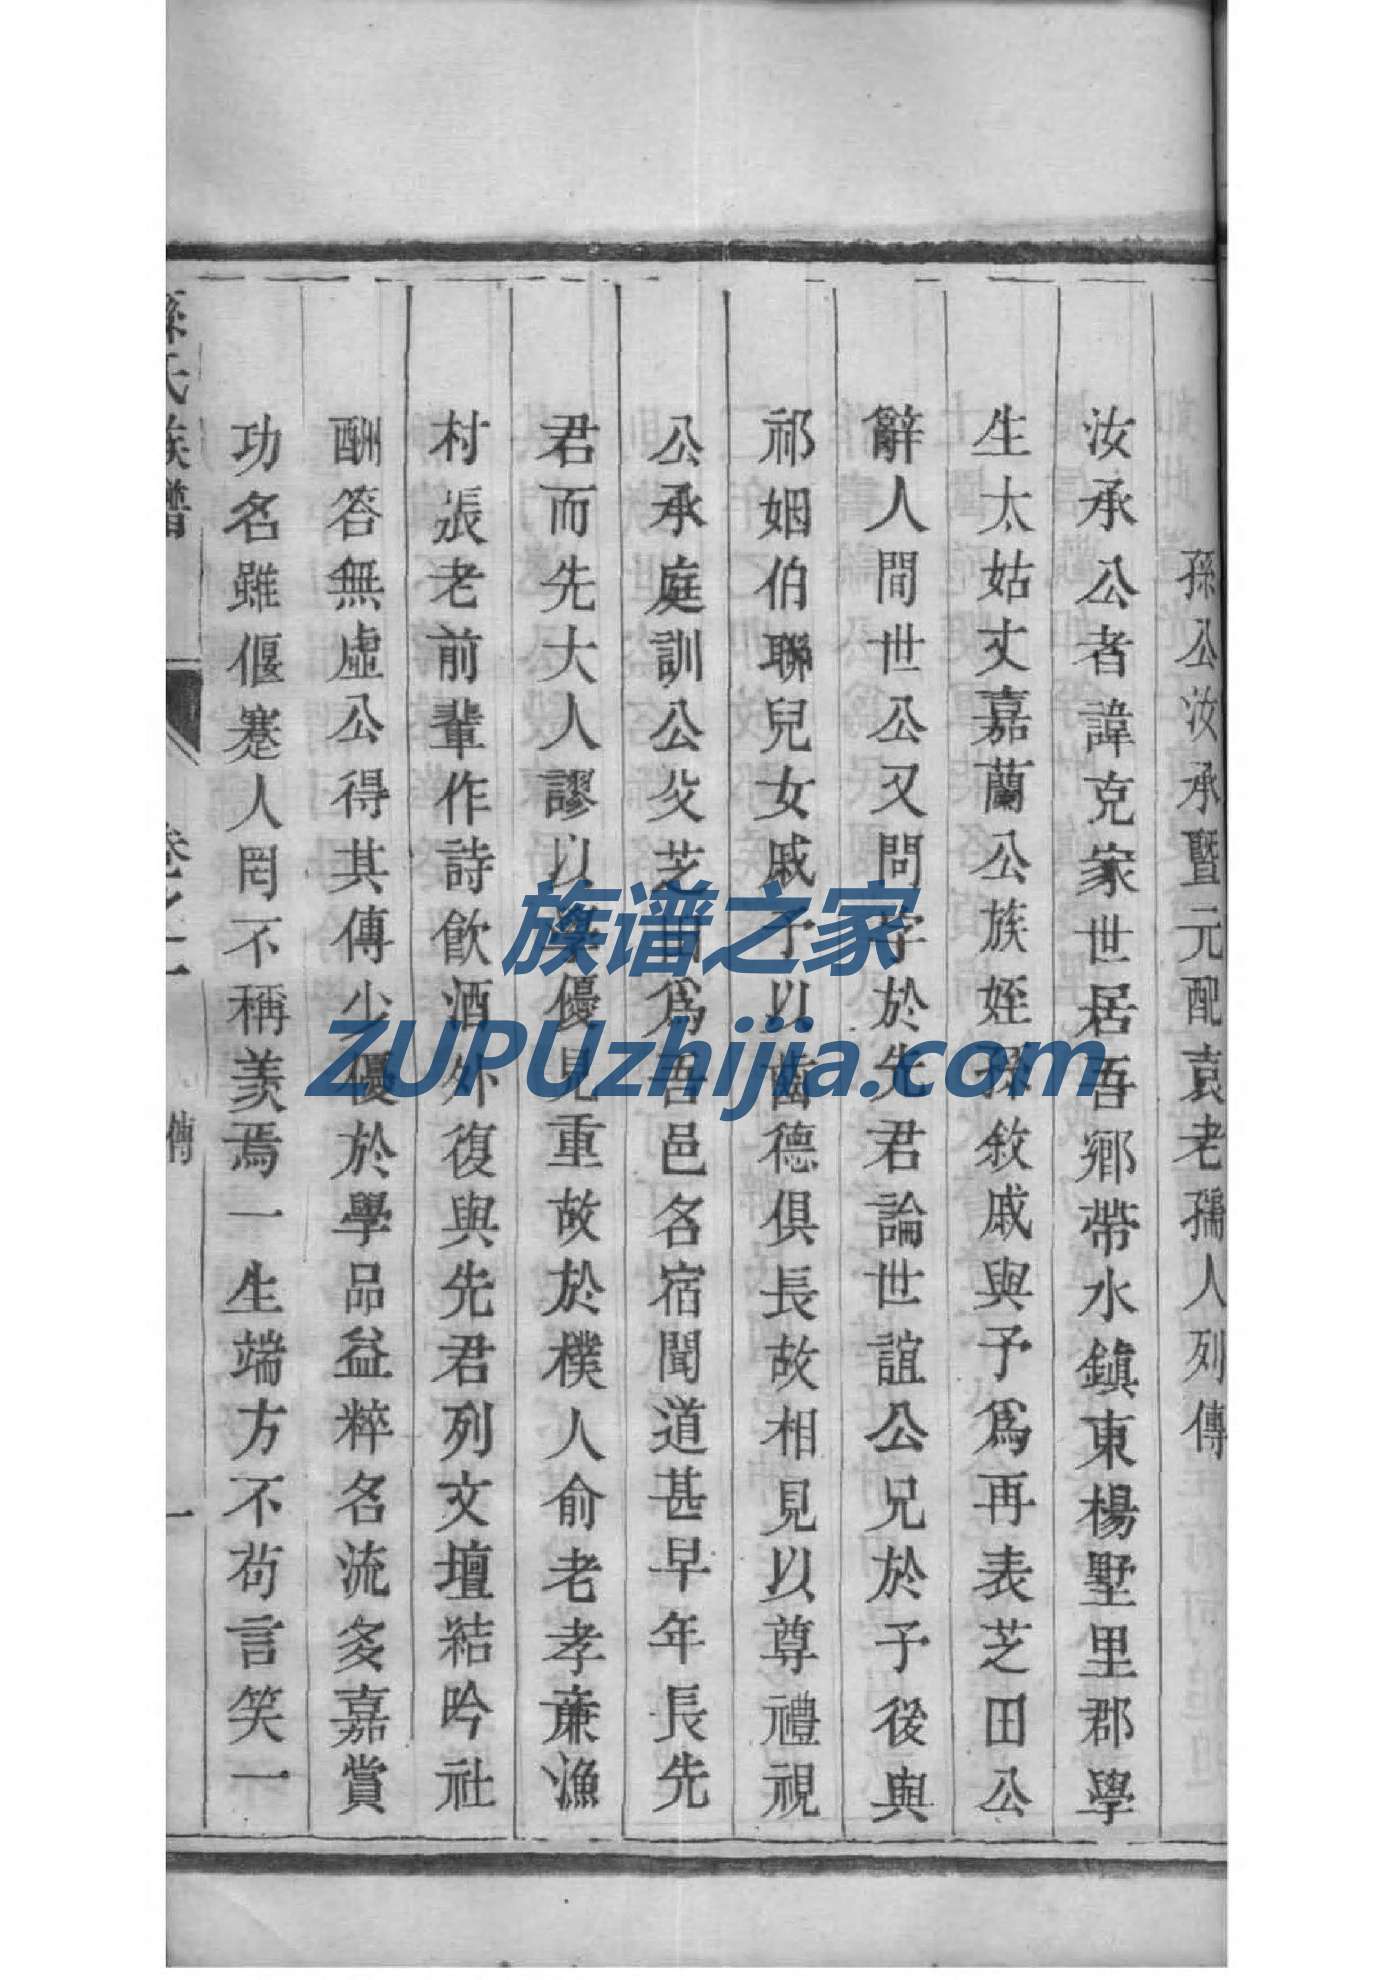 孫公汝承暨元配袁老孺人列傳
汝承公者諱克家世居吾鄉帶水鎮東楊墅里郡學
生太姑丈嘉蘭公族姪孫敘戚與予爲再表芝田公
辭人間世公又問字於先君論世誼公兄於予後與
祁姻伯聯兒女戚予以齒德俱長故相見以尊禮視
公承庭訓公父芝田爲吾邑名宿聞道甚早年長先
君而先大人謬以學優見重故於樸人俞老孝廉漁
村張老前輩作詩飲酒外復與先君列文壇結吟社
酬答無虛公得其傳少優於學品益粹名流多嘉賞
功名雖偃蹇人罔不稱羨焉一生端方不苟言笑一
孫氏族譜
卷之一
傳
一
族谱之家
ZUPUzhijia.com